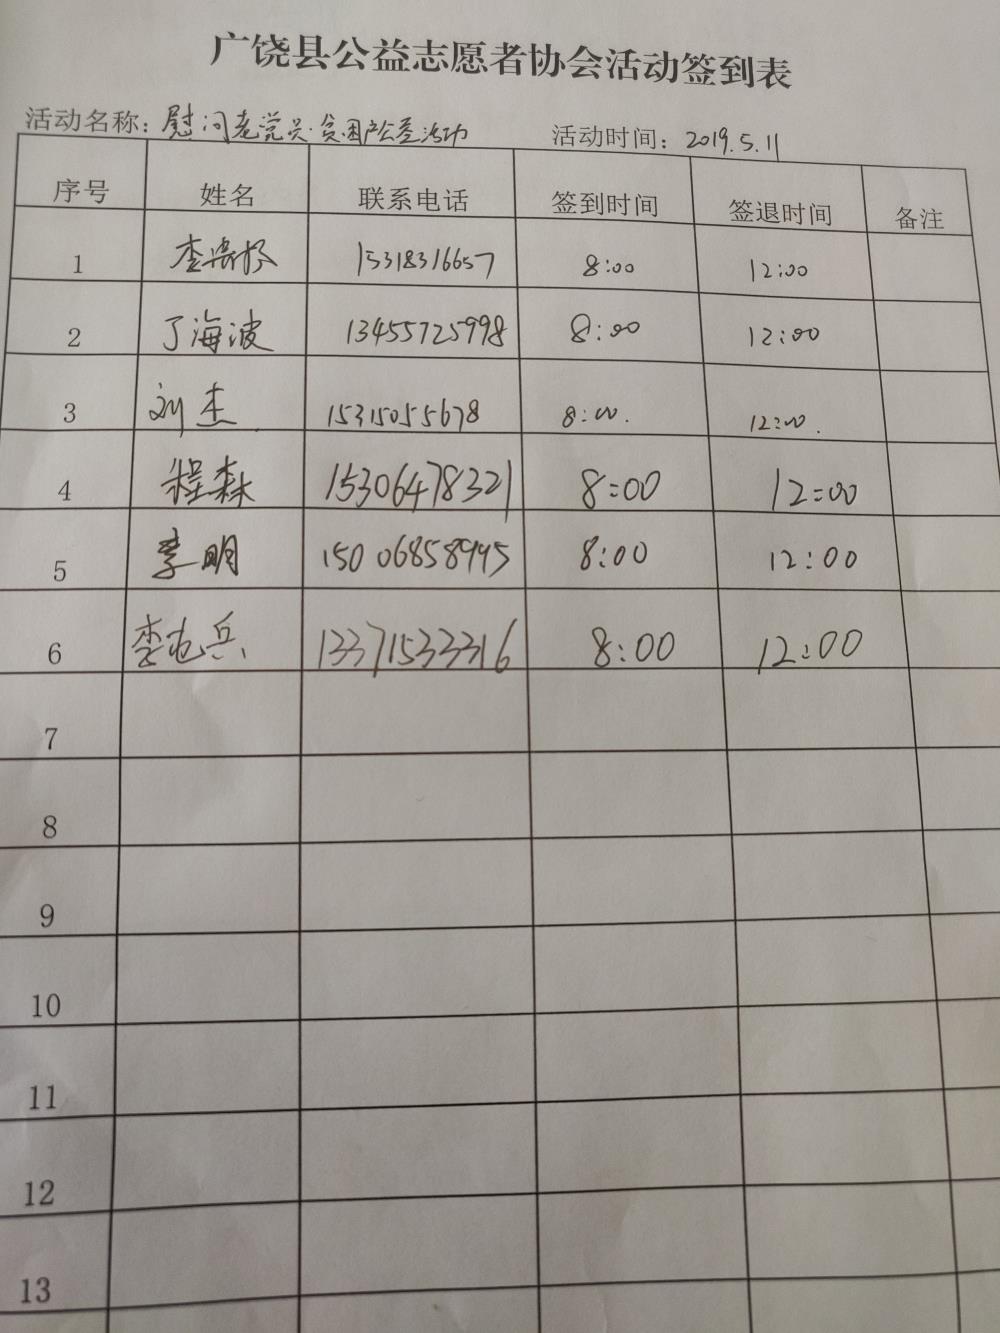 广饶县公益志愿者协会活动签到表
活动名称：慰问老党员·贫困户公益活动 活动时间：2019.5.11
序号 姓名 联系电话 签到时间 签退时间 备注
1 15318316657 8:00 12:00
2 丁海波 13455725998 8:00 12:00
3 刘杰 15315055678 8:00. 12:00.
4 程森 15306478321 8:00 12:00
5 李明 15006858945 8:00 12:00
6 13371533316 8:00 12:00
7
8
9
10
11
12
13